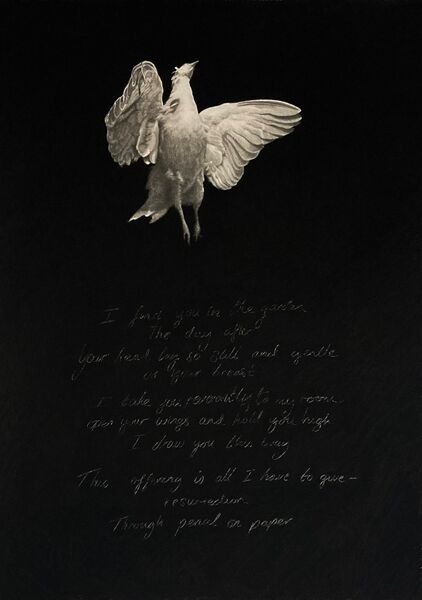 I find you in the garden
The day after
Your head lay so still and gentle
on your breast
I take you reverently to my room
open your wings and hold you high
I draw you this way
This offering is all I have to give -
resurrection
Through pencil on paper